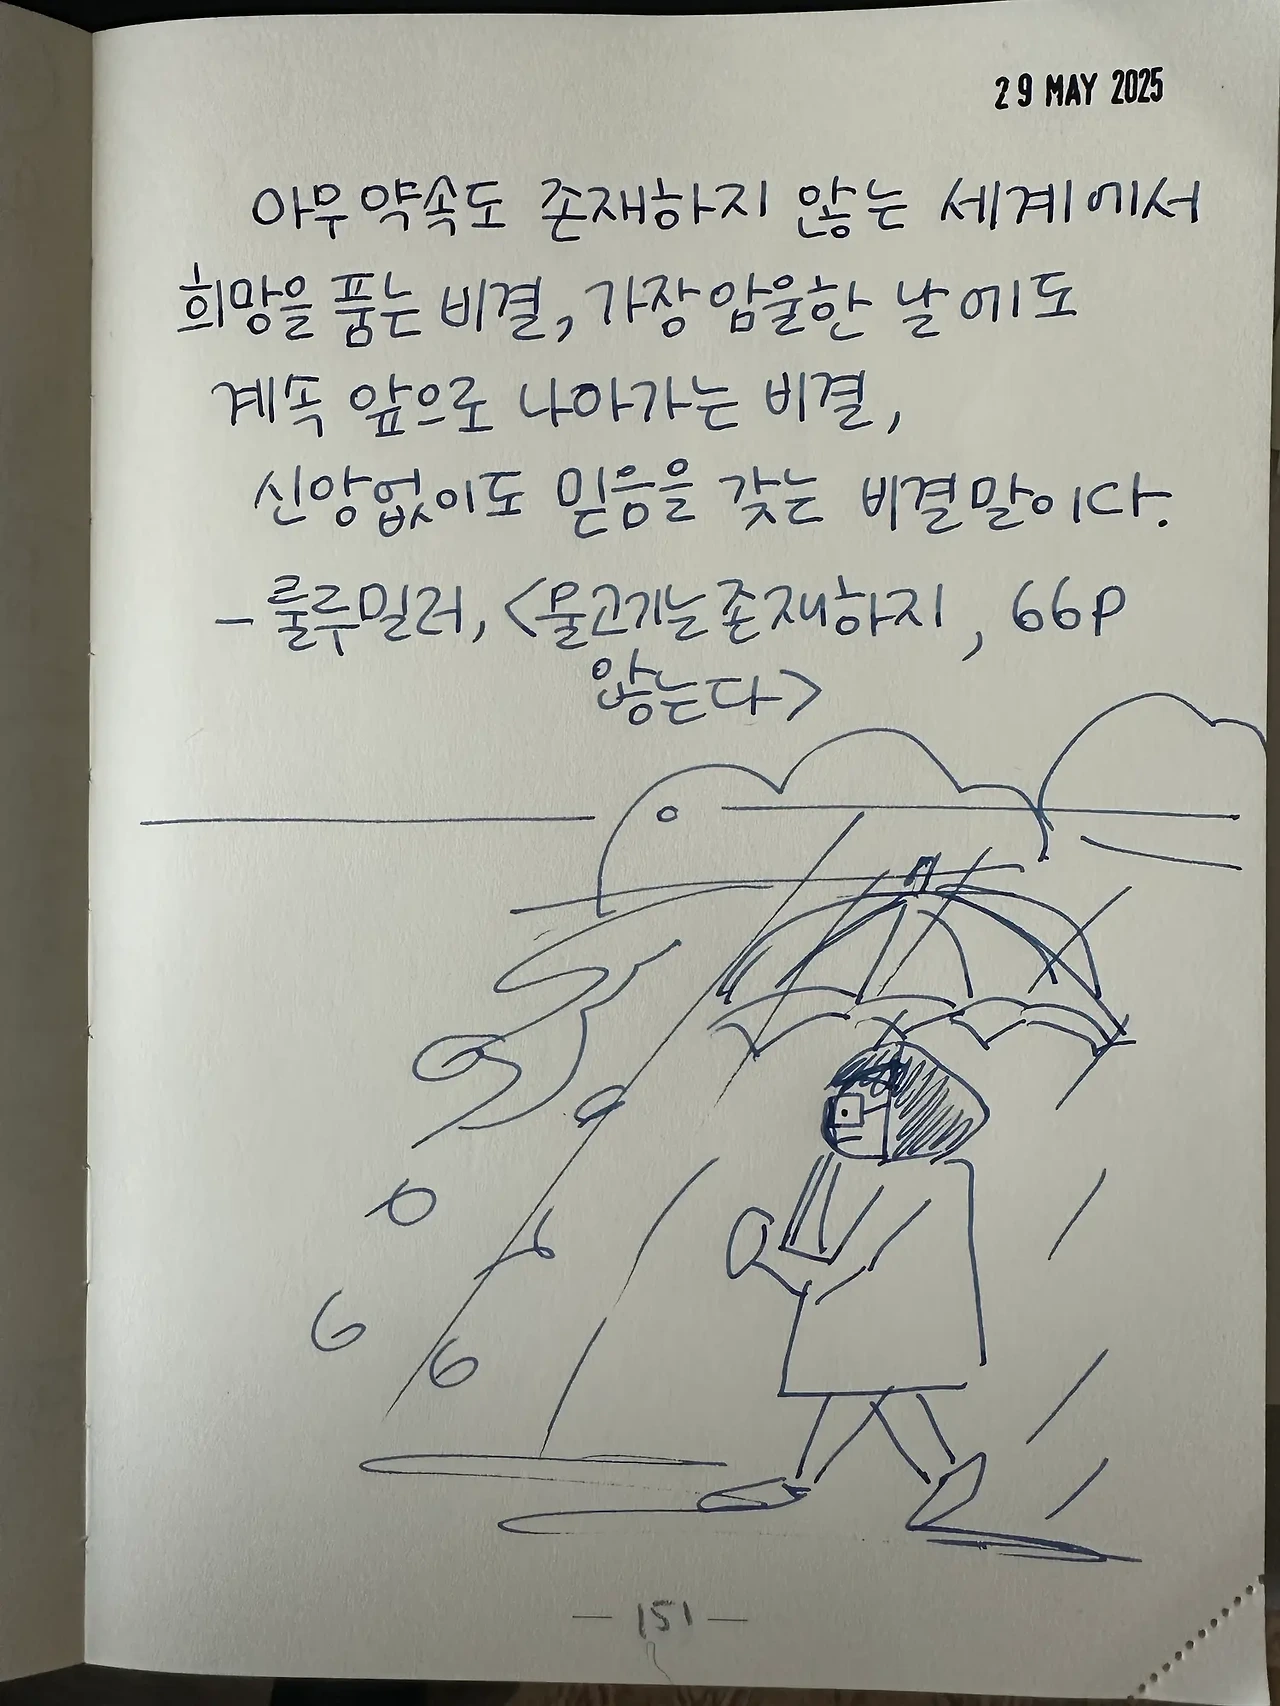 29 MAY 2025
아무 약속도 존재하지 않는 세계에서
희망을 품는 비결, 가장 암울한 날에도
계속 앞으로 나아가는 비결,
신앙없이도 믿음을 갖는 비결말이다.
- 룰루밀러, <물고기는존재하지, 66p
않는다>
- 151 -